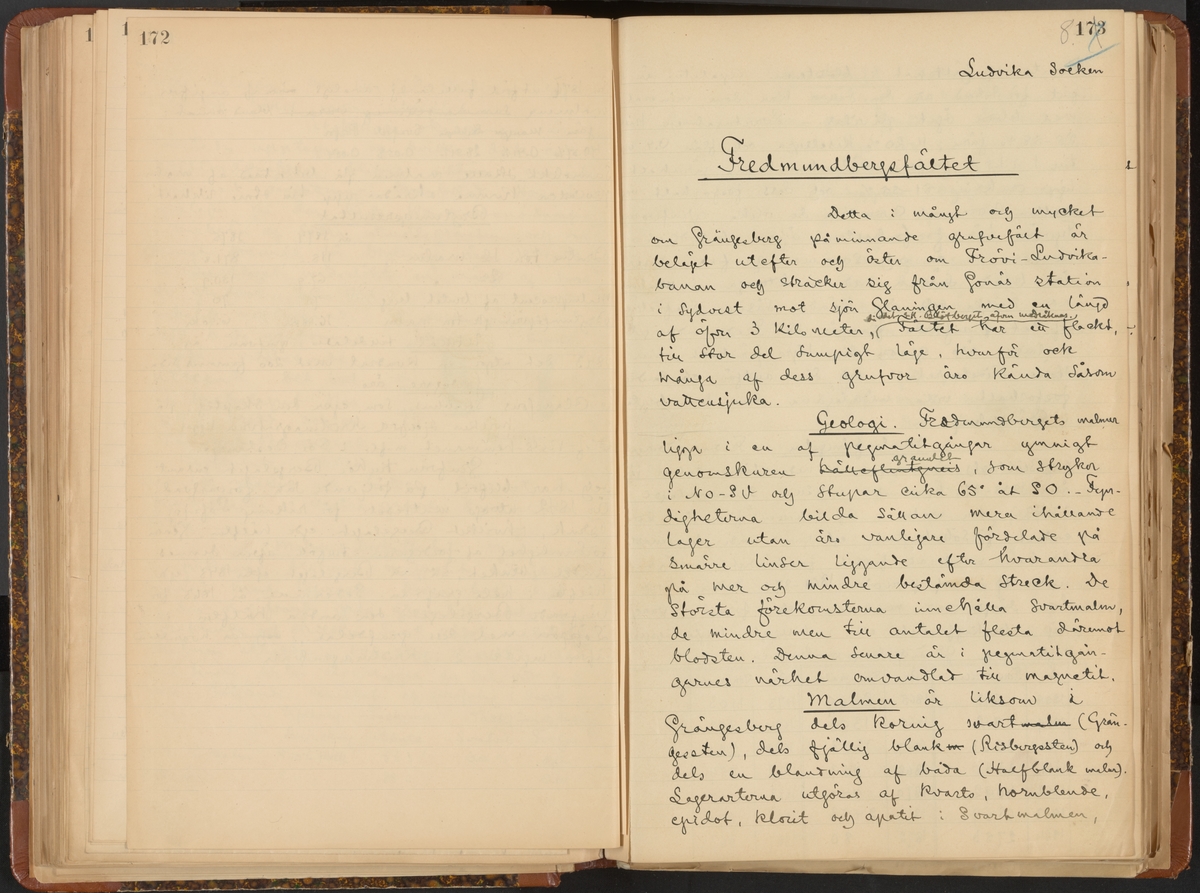 1
1
172
8.
173
Ludvika Socken
Fredmundbergsfältet
Detta i mångt och mycket
om Grängesberg påminnande grufvefält är
beläget utefter och öster om Frövi-Ludvika-
banan och sträcker sig från Gonäs station
i sydvest mot sjön Glaningen med en längd
af öfver 3 kilometer, Fältet har ett flackt,
till stor del sumpigt läge, hvarför ock
många af dess grufvor äro kända såsom
vattensjuka.
Geologi. Fredmundbergets malmer
ligga i en af pegmatitgångar ymnigt
granulit
genomskuren hälleflintgneis, som stryker
i NO-SV och stupar cirka 65° åt SO. - Fyn-
digheterna bilda sällan mera ihållande
lager utan äro vanligare fördelade på
smärre linser liggande efter hvarandra
på mer och mindre bestämda streck. De
största förekomsterna innehålla svartmalm,
de mindre men till antalet flesta däremot
blodsten. Denna senare är i pegmatitgån-
garnes närhet omvandlad till magnetit.
Malmen är liksom i
Grängesberg dels kornig svartmalm (Grän-
gessten), dels fjällig blank (Risbergssten) och
dels en blandning af båda (Halfblank malm).
Lagerarterna utgöras af kvarts, hornblende,
epidot, klorit och apatit i Svartmalmen,